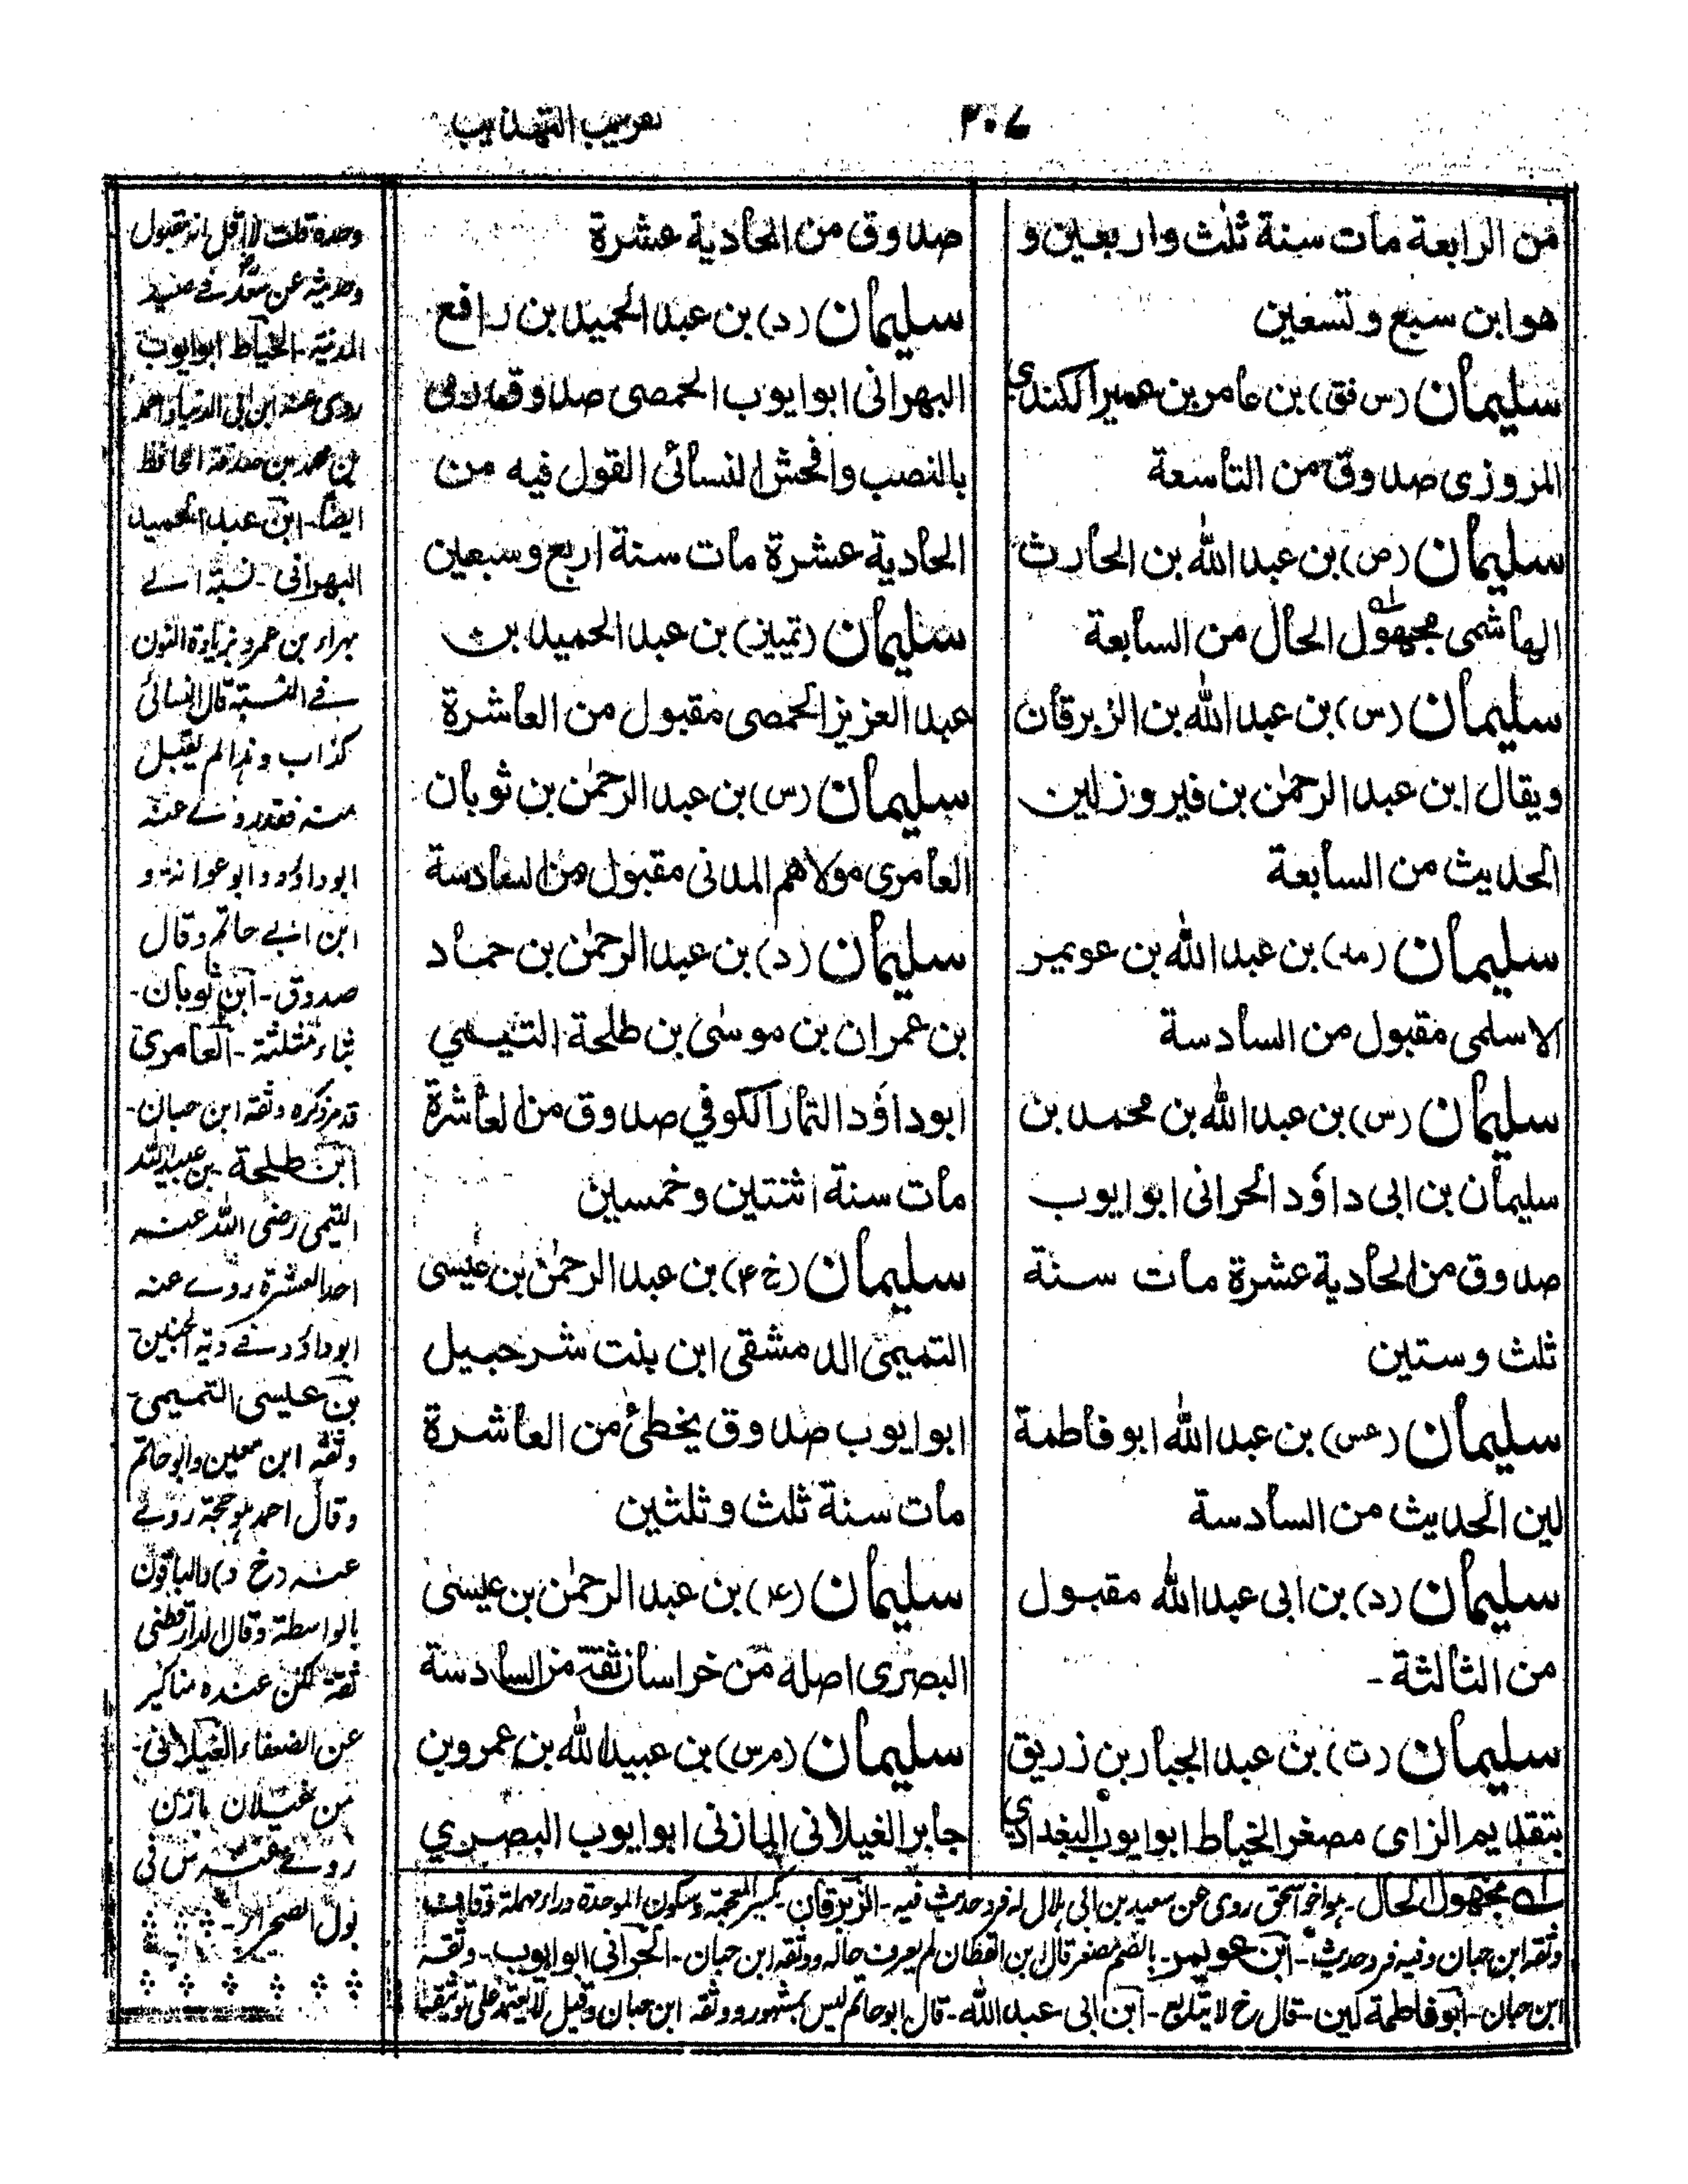 ۲۰۷
تقريب التهذيب
من الرابعة مات سنة ثلث واربعين و
هو ابن سبع وتسعين
سليمان (س فق) بن عامر بن عمير الكندي
المروزى صدوق من التاسعة
سليمان (ص) بن عبد الله بن الحارث
الهاشمى مجهول الحال من السابعة
سليمان (س) بن عبد الله بن الزبرقان
ويقال ابن عبد الرحمٰن بن فيروز لين
الحديث من السابعة
سليمان (مد) بن عبد الله بن عويمر
الاسلمى مقبول من السادسة
سليمان (س) بن عبد الله بن محمد بن
سليمان بن ابى داؤد الحرانى ابو ايوب
صدوق من الحادية عشرة مات سنة
ثلث وستين
سليمان (عس) بن عبد الله ابو فاطمة
لين الحديث من السادسة
سليمان (د) بن ابى عبد الله مقبول
من الثالثة -
سليمان (ت) بن عبد الجبار بن زريق
بتقديم الزاى مصغر الخياط ابو ايوب البغدادي
صدوق من الحادية عشرة
سليمان (د) بن عبد الحميد بن رافع
البهرانى ابو ايوب الحمصى صدوق رمى
بالنصب وافحش النسائى القول فيه من
الحادية عشرة مات سنة اربع وسبعين
سليمان (تمييز) بن عبد الحميد بن
عبد العزيز الحمصى مقبول من العاشرة
سليمان (س) بن عبد الرحمٰن بن ثوبان
العامرى مولاهم المدنى مقبول من السادسة
سليمان (د) بن عبد الرحمٰن بن حماد
بن عمران بن موسىٰ بن طلحة التيمي
ابو داؤد التمار الكوفي صدوق من العاشرة
مات سنة اثنتين وخمسين
سليمان (خ ۴) بن عبد الرحمٰن بن عيسى
التميمى الدمشقى ابن بنت شرحبيل
ابو ايوب صدوق يخطئ من العاشرة
مات سنة ثلث وثلثين
سليمان (۴) بن عبد الرحمٰن بن عيسى
البصرى اصله من خراسان ثقة من السادسة
سليمان (م س) بن عبيد الله بن عمرو بن
جابر الغيلانى المازنى ابو ايوب البصري
وحده قلت لا اقل انه مقبول
وحديثه عن سعد فے صيد
المدينة - الخياط ابو ايوب
روى عنه ابن ابى الدنيا واحمد
بن محمد بن صدقة الحافظ
ايضا - ابن عبد الحميد
البهرانى - نسبة اسلے
بهراء بن عمرو بزيادة النون
فے النسبة قال النسائى
كذاب وهذا لم يقبل
منه فقد روے عنه
ابو داؤد وابو عوانة و
ابن ابے حاتم وقال
صدوق - ابن ثوبان -
بثاء مثلثة - العامرى
قد مر ذكره وثقه ابن حبان -
ابن طلحة - بن عبيد الله
التيمى رضى الله عنه
احد العشرة روے عنه
ابو داؤد فے دية الجنين
بن عيسى التميمى
وثقه ابن معين وابو حاتم
وقال احمد هو حجة روے
عنه (خ د) والباقون
بالواسطة وقال الدارقطنى
ثقة لكن عنده مناكير
عن الضعفاء الغيلانى -
من غيلان مازن
روے عنه س فى
بول الصحراء -
له مجهول الحال - هو اخو اسحق روى عن سعيد بن ابى هلال له فرد حديث فيه - الزبرقان - بكسر المعجمة وسكون الموحدة وراء مهملة وقاف
وثقه ابن حبان وفيه فرد حديث - ابن عويمر - بالضم مصغر قال ابن القطان لم يعرف حاله ووثقه ابن حبان - الحرانى ابو ايوب - وثقه
ابن حبان - ابو فاطمة لين - قال خ لا يتابع - ابن ابى عبد الله - قال ابو حاتم ليس بمشهور ووثقه ابن حبان وقيل لا يعتمد على توثيقه